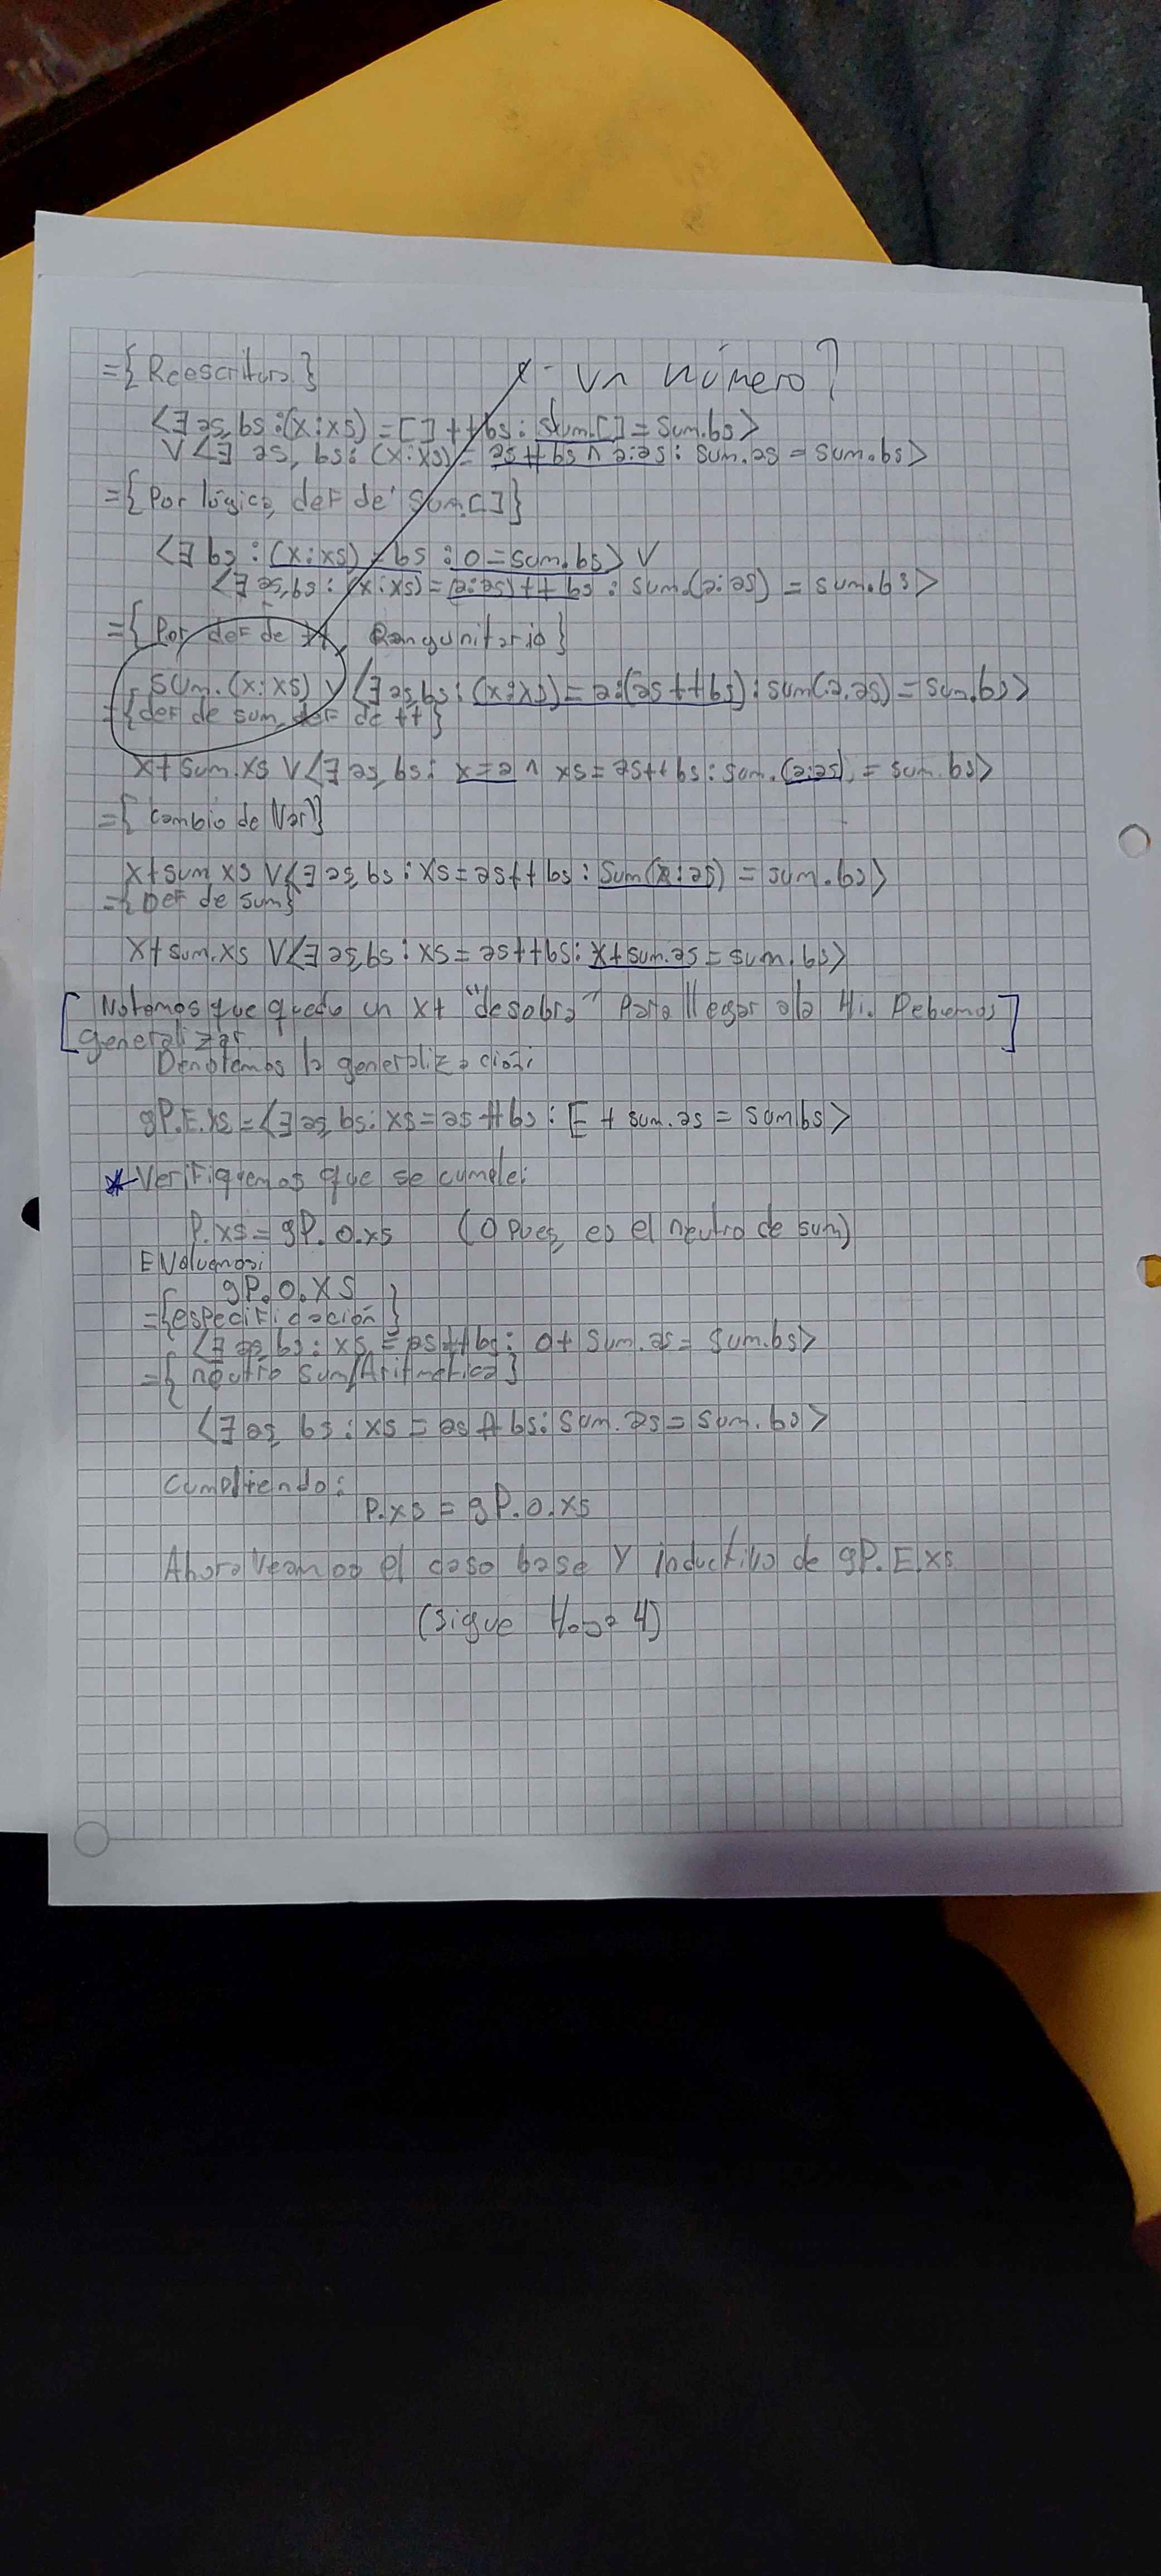 ={Reescritura}
x - un número?
⟨∃ as, bs : (x:xs) = [] ++ bs : sum.[] = sum.bs⟩
∨⟨∃ as, bs : (x:xs) = as ++ bs ∧ a:as : sum.as = sum.bs⟩
={Por lógica, def de sum.[]}
⟨∃ bs : (x:xs) = bs : 0 = sum.bs⟩ ∨
⟨∃ as,bs : (x:xs) = (a:as) ++ bs : sum.(a:as) = sum.bs⟩
={Por def de ++, Rango unitario}
sum.(x:xs) ∨ ⟨∃ as,bs : (x:xs) = a:(as ++ bs) : sum(a.as) = sum.bs⟩
={def de sum, def de ++}
x + sum.xs ∨⟨∃ as, bs : x = a ∧ xs = as ++ bs : sum.(a:as) = sum.bs⟩
={cambio de Var}
x + sum xs ∨⟨∃ as, bs : xs = as ++ bs : sum(x:as) = sum.bs⟩
={Def de sum}
x + sum.xs ∨⟨∃ as,bs : xs = as ++ bs : x + sum.as = sum.bs⟩
[Notemos que quedo un x+ "de sobra" Para llegar a la Hi. Debemos]
generalizar.
Denotemos la generalización:
gP.E.xs = ⟨∃ as, bs : xs = as ++ bs : E + sum.as = sum.bs⟩
* Verifiquemos que se cumple:
P.xs = gP.0.xs (0 pues, es el neutro de sum)
Evaluemos:
gP.0.xs
={especificación}
⟨∃ as, bs : xs = as ++ bs : 0 + sum.as = sum.bs⟩
={neutro sum/Aritmetica}
⟨∃ as, bs : xs = as ++ bs : sum.as = sum.bs⟩
Cumpliendo:
P.xs = gP.0.xs
Ahora veamos el caso base y inductivo de gP.E.xs
(sigue Hoja 4)